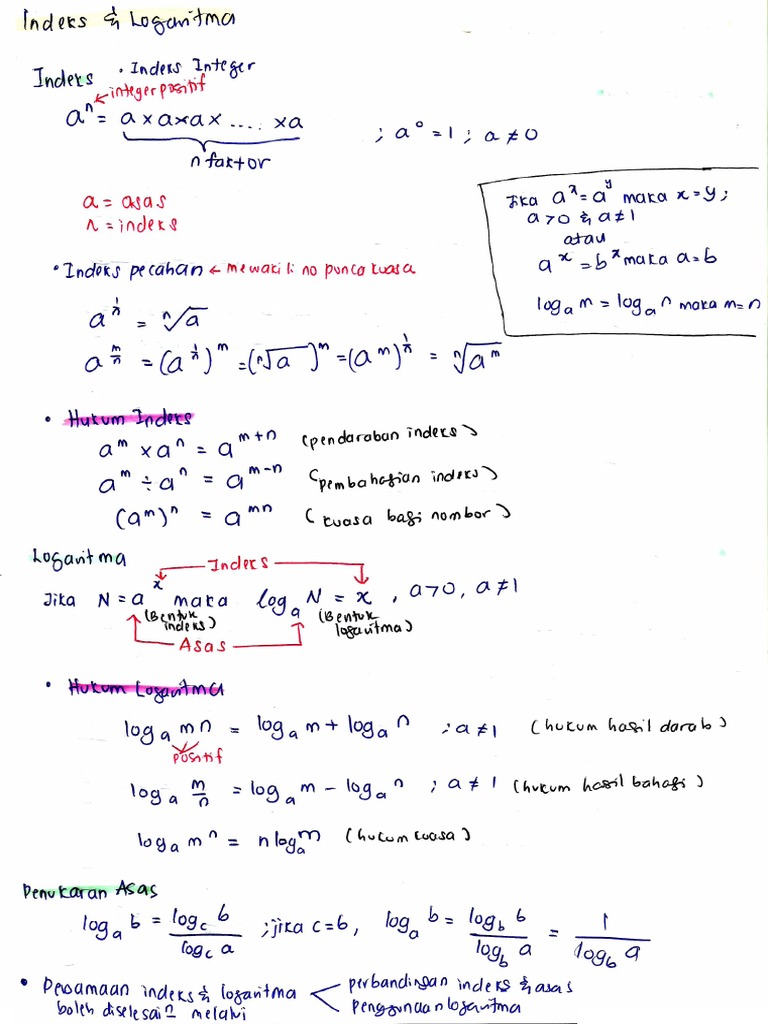 Indeks & Logaritma
Indeks • Indeks Integer
aⁿ ← integer positif
= a × a × a × .... × a ; a⁰ = 1 ; a ≠ 0
n faktor
a = asas
n = indeks
Jika aˣ = aʸ maka x = y;
a > 0 & a ≠ 1
atau
aˣ = bˣ maka a = b
logₐ m = logₐ n maka m = n
• Indeks pecahan ← mewakili no punca kuasa
a^(1/n) = ⁿ√a
a^(m/n) = (a^(1/n))^m = (ⁿ√a)^m = (a^m)^(1/n) = ⁿ√a^m
• Hukum Indeks
a^m × a^n = a^(m+n) (pendaraban indeks)
a^m ÷ a^n = a^(m−n) (pembahagian indeks)
(a^m)^n = a^(mn) (kuasa bagi nombor)
Logaritma
Indeks
Jika N = aˣ maka logₐ N = x , a > 0, a ≠ 1
(Bentuk indeks) (Bentuk logaritma)
Asas
• Hukum Logaritma
logₐ mn = logₐ m + logₐ n ; a ≠ 1 (hukum hasil darab)
positif
logₐ m/n = logₐ m − logₐ n ; a ≠ 1 (hukum hasil bahagi)
logₐ mⁿ = n logₐ m (hukum kuasa)
Penukaran Asas
logₐ b = log_c b / log_c a ; jika c = b, logₐ b = log_b b / log_b a = 1 / log_b a
• Persamaan indeks & logaritma < perbandingan indeks & asas
boleh diselesai² melalui penggunaan logaritma